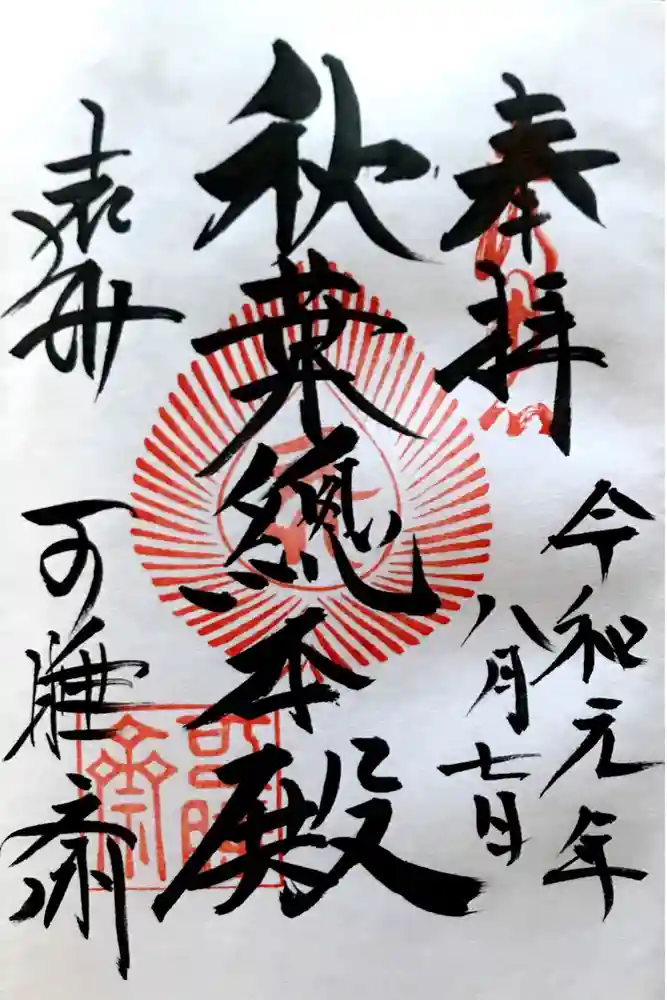 奉拝
令和元年
八月七日
秋葉總本殿
遠州
可睡斎